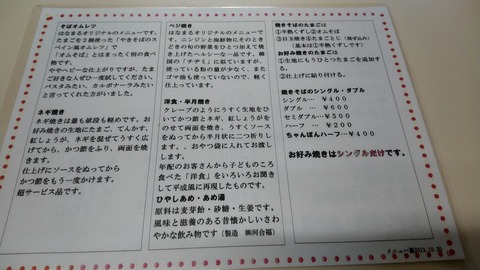 そばオムレツ
はなまるオリジナルのメニューです。
たまごを２個使った「やきそばのス
ペイン風オムレツ」で
「オムそば」とはまったく別の食べ
物です。
ややヘビーな仕上がりですが、たま
ご好きな人がぜひ一度試してください。
パスタみたい、カルボナーラみたい
と言ってくれた方がいました。
ネギ焼き
ネギ焼きは最も値段も軽めです。お
好み焼きの生地にたまご、てんかす、
紅しょうが、ネギを混ぜてうすく広
げてから、かつ節をふり、両面を焼
きます。
仕上げにソースをぬってから
かつ節をもう一度かけます。
超サービス品です。
ベジ焼き
はなまるオリジナルのメニューで
す。ニンジンと海鮮物にそのとき
どきの旬の野菜をひとつ加えて焼
きあげたヘルシーな一品です。韓
国の「チヂミ」に似ていますが、
使っている粉の量が少なく、また
ゴマ油も使っていないので、軽く仕
上っています。
洋食・半月焼き
クレープのようにうすく生地をひ
いてかつ節とネギ、紅しょうがを
のせて両面を焼き、うすくソース
をぬってから半月状に二つ折りし
ます。、おやつ袋に入れてお渡しし
ます。
年配のお客さんから子どものころ
食べた「洋食」をいろいろお聞き
して平成風に再現したものです。
ひやしあめ・あめ湯
原料は麦芽飴・砂糖・生姜です。
風味と滋養のある昔懐かしいさわ
やかな飲み物です（製造　㈱河合福）
焼きそばのたまごは、
①半熟くずし②オムそば
③目玉焼き④生たまごとじ（混ぜ込み）
（基本は①半熟くずしです）
お好み焼きのたまごは
①生地にもうひとつたまごを追加す
る。
②仕上げに貼り付ける。
焼きそばのシングル・ダブル
シングル… ￥４００
ダブル … ￥６００
セミダブル… ￥５００
ハーフ … ￥２００
ちゃんぽんハーフ…￥４００
お好み焼きはシングルだけです。
メニュー裏2013.10.20